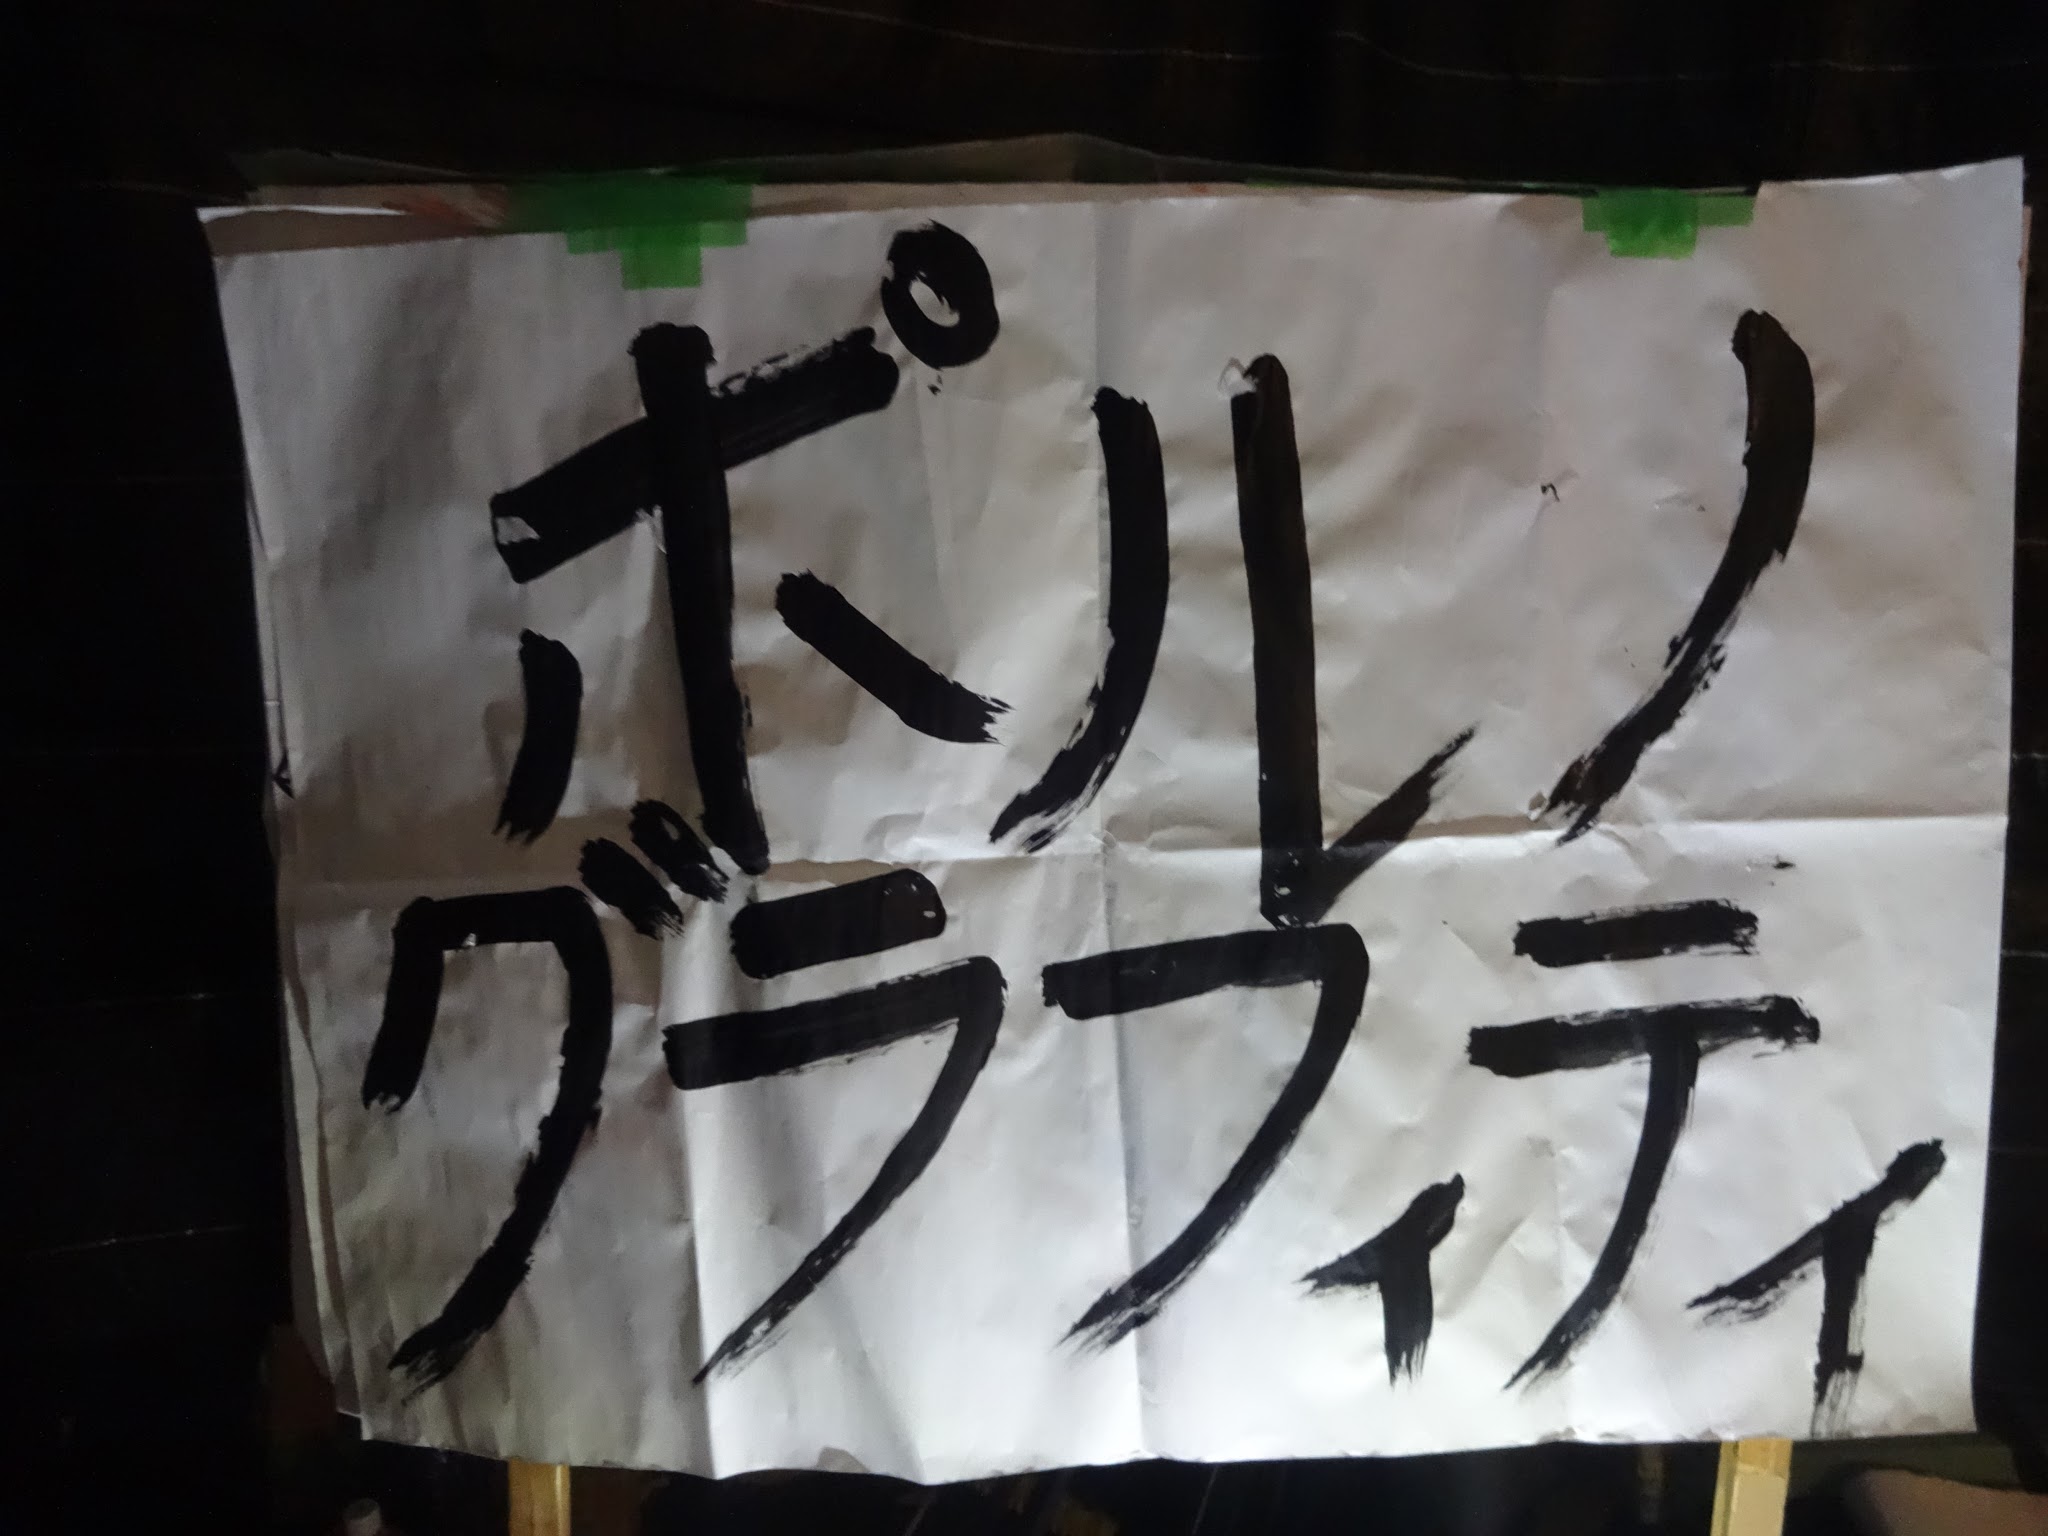 ポルノ
グラフィティ